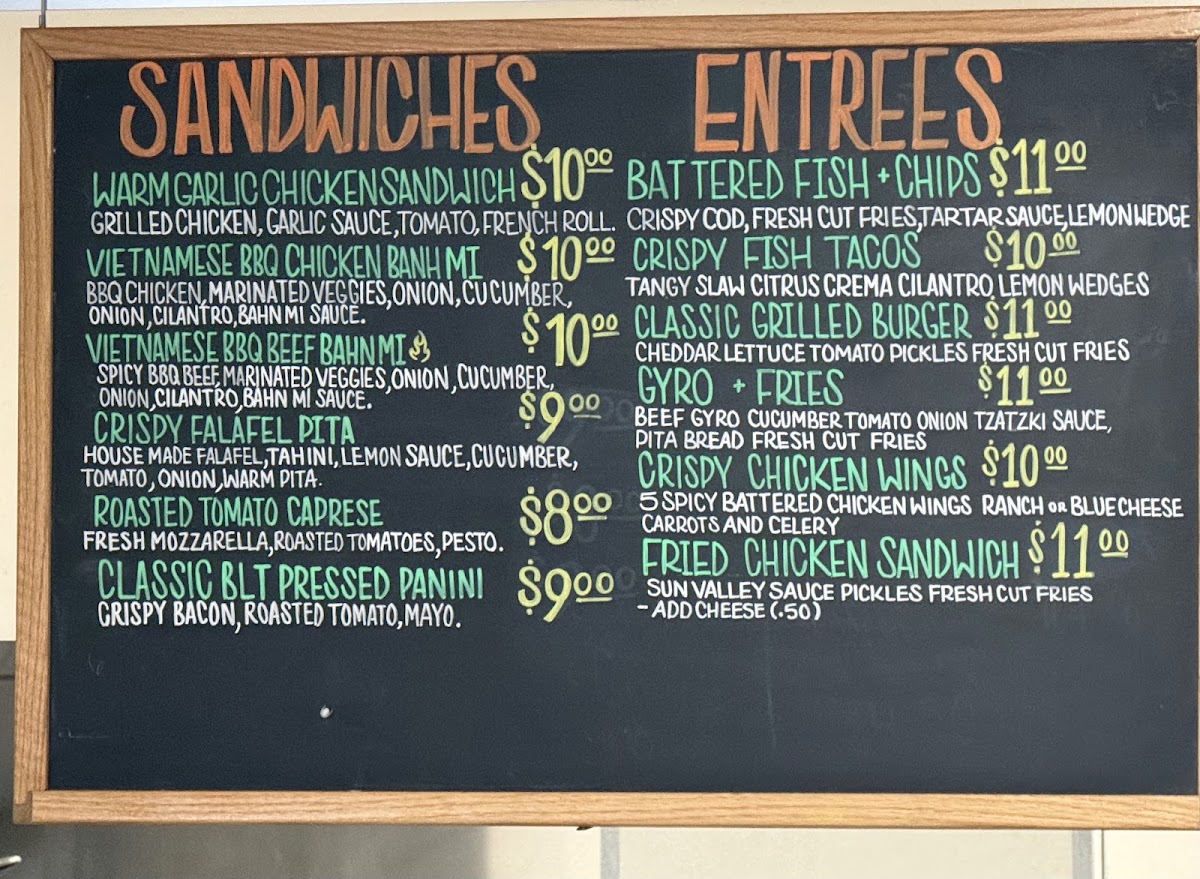 SANDWICHES
WARM GARLIC CHICKEN SANDWICH $10.00
GRILLED CHICKEN, GARLIC SAUCE, TOMATO, FRENCH ROLL.
VIETNAMESE BBQ CHICKEN BANH MI $10.00
BBQ CHICKEN, MARINATED VEGGIES, ONION, CUCUMBER,
ONION, CILANTRO, BAHN MI SAUCE.
VIETNAMESE BBQ BEEF BAHN MI $10.00
SPICY BBQ BEEF, MARINATED VEGGIES, ONION, CUCUMBER,
ONION, CILANTRO, BAHN MI SAUCE.
CRISPY FALAFEL PITA $9.00
HOUSE MADE FALAFEL, TAHINI, LEMON SAUCE, CUCUMBER,
TOMATO, ONION, WARM PITA.
ROASTED TOMATO CAPRESE $8.00
FRESH MOZZARELLA, ROASTED TOMATOES, PESTO.
CLASSIC BLT PRESSED PANINI $9.00
CRISPY BACON, ROASTED TOMATO, MAYO.
ENTREES
BATTERED FISH + CHIPS $11.00
CRISPY COD, FRESH CUT FRIES, TARTAR SAUCE, LEMON WEDGE
CRISPY FISH TACOS $10.00
TANGY SLAW CITRUS CREMA CILANTRO LEMON WEDGES
CLASSIC GRILLED BURGER $11.00
CHEDDAR LETTUCE TOMATO PICKLES FRESH CUT FRIES
GYRO + FRIES $11.00
BEEF GYRO CUCUMBER TOMATO ONION TZATZKI SAUCE,
PITA BREAD FRESH CUT FRIES
CRISPY CHICKEN WINGS $10.00
5 SPICY BATTERED CHICKEN WINGS RANCH OR BLUE CHEESE
CARROTS AND CELERY
FRIED CHICKEN SANDWICH $11.00
SUN VALLEY SAUCE PICKLES FRESH CUT FRIES
- ADD CHEESE (.50)